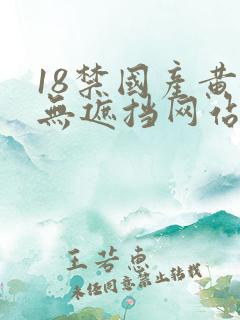 18禁國產黄
無遮挡网站
王若惠
未经同意禁止转载